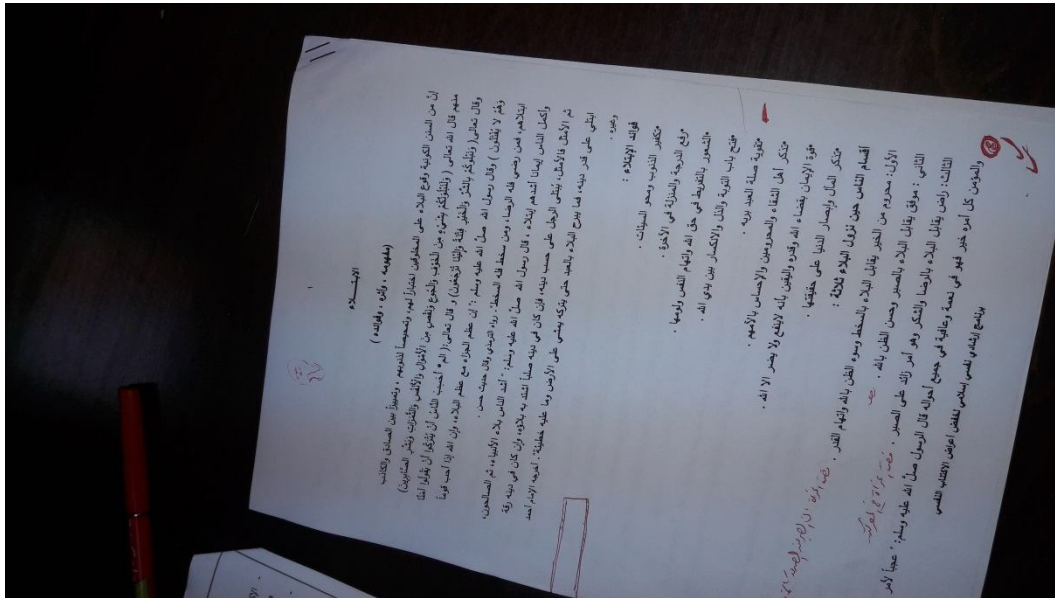 الابتـــــلاء
( مفهومه ، وأثره ، وفوائده )
إن من السنن الكونية وقوع البلاء على المخلوقين اختباراً لهم، وتمحيصاً لذنوبهم ، وتمييزاً بين الصادق والكاذب
منهم قال الله تعالى ( وَلَنَبْلُوَنَّكُمْ بِشَيْءٍ مِنَ الْخَوْفِ وَالْجُوعِ وَنَقْصٍ مِنَ الْأَمْوَالِ وَالْأَنْفُسِ وَالثَّمَرَاتِ وَبَشِّرِ الصَّابِرِينَ)
وقال تعالى( وَنَبْلُوكُمْ بِالشَّرِّ وَالْخَيْرِ فِتْنَةً وَإِلَيْنَا تُرْجَعُونَ) و قال تعالى:( الم* أَحَسِبَ النَّاسُ أَنْ يُتْرَكُوا أَنْ يَقُولُوا آمَنَّا
وَهُمْ لَا يُفْتَنُونَ ) وقال رسول الله صلّ الله عليه وسلم :" إن عظم الجزاء مع عظم البلاء، وإن الله إذا أحب قوماً
ابتلاهم، فمن رضي فله الرضا، ومن سخط فله السخط". رواه الترمذي وقال حديث حسن .
وأكمل الناس إيمانا أشدهم إبتلاء ، قال رسول الله صلّ الله عليه وسلم: " أشد الناس بلاء الأنبياء، ثم الصالحون،
ثم الأمثل فالأمثل، يُبتلى الرجل على حسب دينه، فإن كان في دينه صلباً اشتد به بلاؤه، وإن كان في دينه رقة
ابتلي على قدر دينه، فما يبرح البلاء بالعبد حتى يتركه يمشي على الأرض وما عليه خطيئة". أخرجه الإمام أحمد
وغيره .
فوائد الإبتلاء :
•تكفير الذنوب ومحو السيئات .
•رفع الدرجة والمنزلة في الآخرة .
•الشعور بالتفريط في حق الله واتهام النفس ولومها .
•فتح باب التوبة والذل والانكسار بين يدي الله .
•تقوية صلة العبد بربه .
•تذكر أهل الشقاء والمحرومين والإحساس بالآمهم .
•قوة الإيمان بقضاء الله وقدره واليقين بأنه لاينفع ولا يضر إلا الله .
•تذكر المآل وإبصار الدنيا على حقيقتها .
أقسام الناس حين نزول البلاء ثلاثة :
الأول: محروم من الخير يقابل البلاء بالسخط وسوء الظن بالله واتهام القدر .
الثاني : موفق يقابل البلاء بالصبر وحسن الظن بالله .
الثالث: راض يقابل البلاء بالرضا والشكر وهو أمر زائد على الصبر .
والمؤمن كل أمره خير فهو في نعمة وعافية في جميع أحواله قال الرسول صلّ الله عليه وسلم: " عجباً لأمر
برنامج إرشادي نفسي إسلامي لخفض أعراض الاكتئاب النفسي